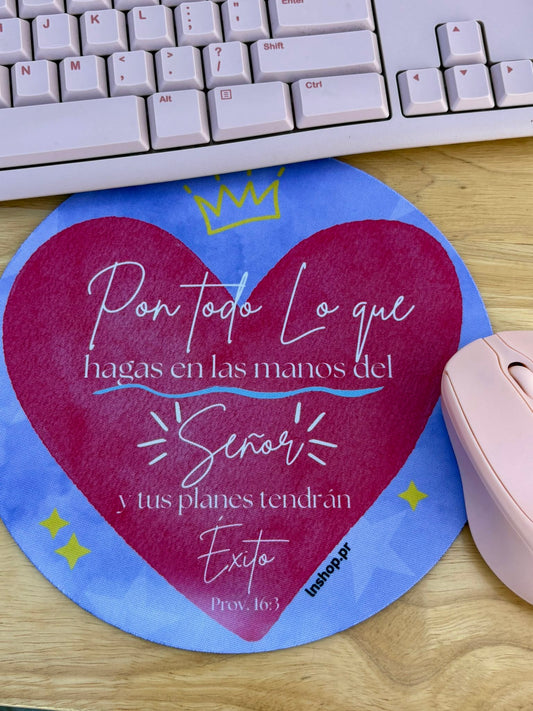 Home
Enter
J
K
L
:
;
"
'
Enter
N
M
<
,
>
.
?
/
Shift
Alt
Ctrl
Pon todo Lo que
hagas en las manos del
Señor
y tus planes tendrán
Éxito
Prov. 16:3
Inshop.pr